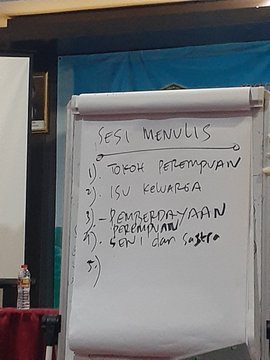 SESI MENULIS
1). TOKOH PEREMPUAN
2). ISU KELUARGA
3). - PEMBERDAYAAN
PEREMPUAN
4). SENI dan Sastra
5.)